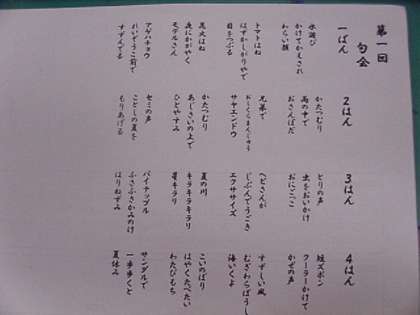 第一回
句会
一ぱん
水遊び
かけてかえされ
わらい顔
トマトはね
はずかしがりやで
目をつぶる
花火はね
夜にかがやく
モデルさん
アゲハチョウ
れいぞうこ前で
すずんでる
2はん
かたつむり
高の中で
おさんぽだ
兄弟で
おしくらまんじゅう
サヤエンドウ
かたつむり
あじさいの上で
ひとやすみ
セミの声
ことしの夏を
もりあげる
3はん
とりの声
虫をおいかけ
おにごっこ
ヘビさんが
じぶんでうごき
エクササイズ
夏の川
キラキラキラリ
星キラリ
パイナップル
ふさふさかみのけ
はりねずみ
4はん
短ズボン
クーラーかけて
かぜの声
すずしい風
むぎわらぼうし
海いくよ
こいのぼり
はやくたべたい
わたびもち
サンダルで
一歩歩くと
夏休み